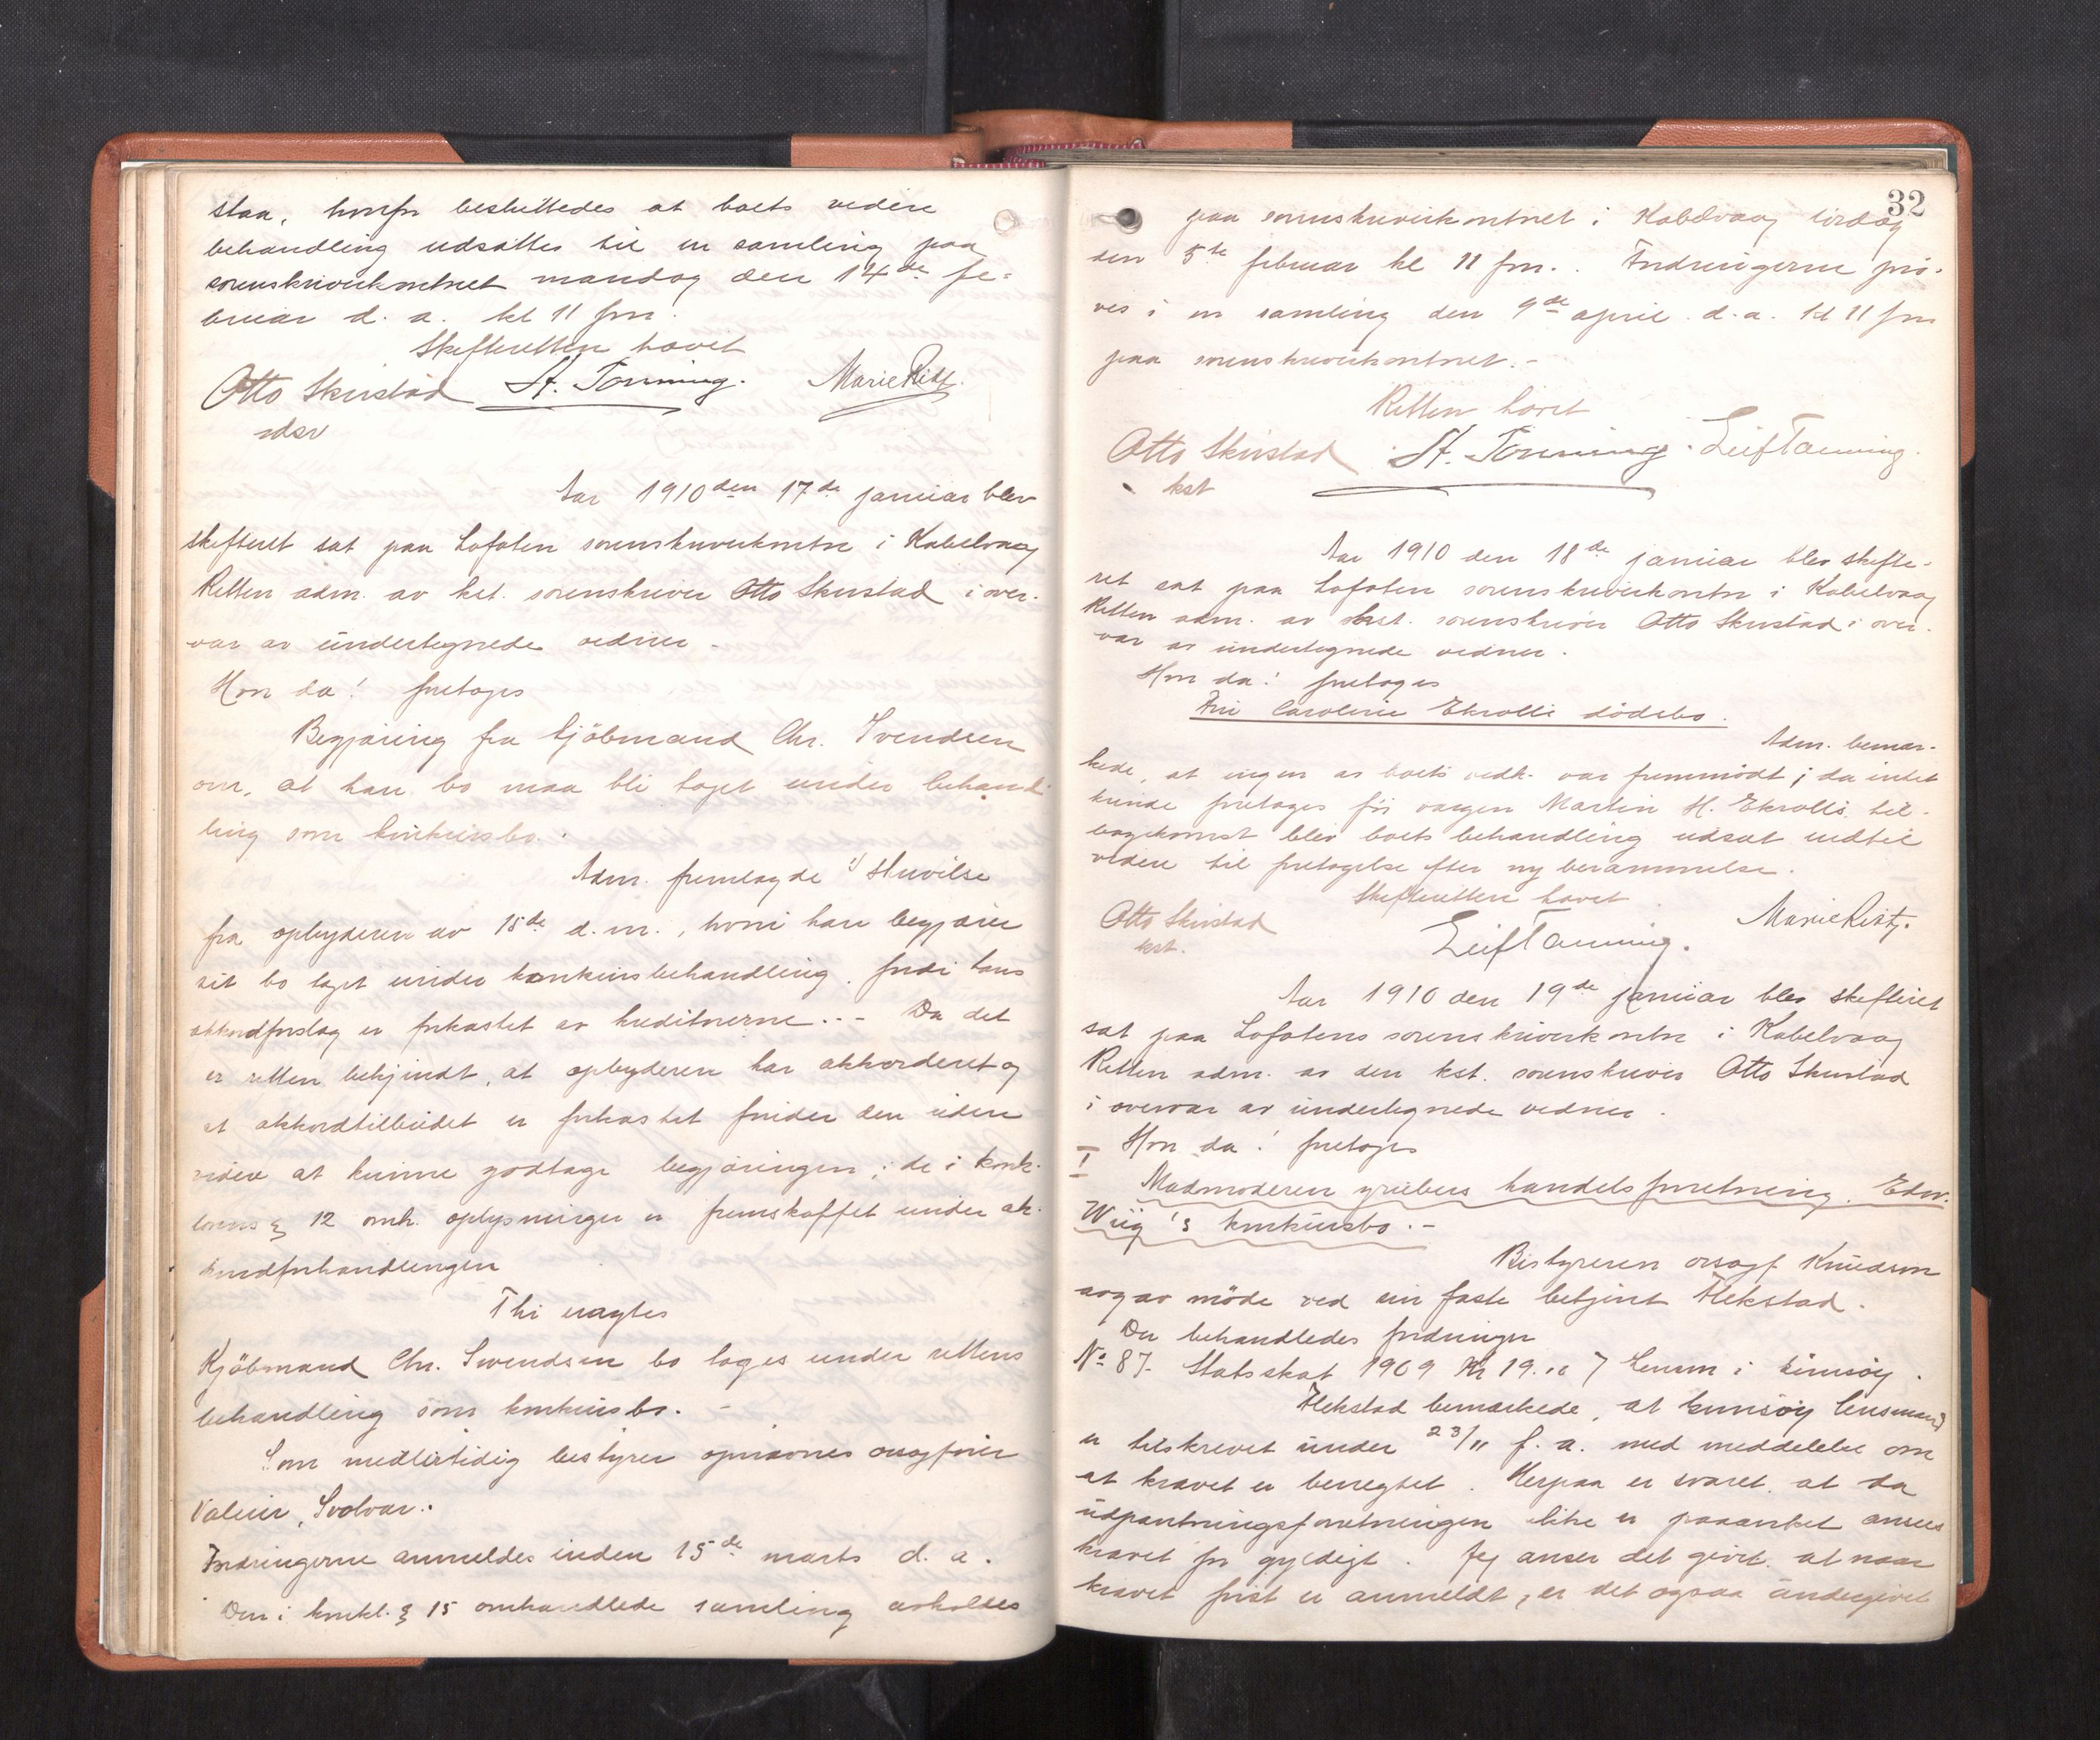 staa, hvorfor besluttedes at boets videre
behandling udsattes til en samling paa
sorenskriverkontoret mandag den 14de fe-
bruar d. a. kl 11 fm.
Skifteretten hævet
Otto Skirstad St. Tønning. Marie Rist.
Aar 1910 den 17de januar blev
skifteret sat paa Lofoten sorenskriverkontor i Kabelvaag
Retten adm. av kst. sorenskriver Otto Skirstad i over-
vær av undertegnede vidner.
Hvor da! foretoges
Begjæring fra kjøbmand Chr. Svendsen
om, at hans bo maa bli taget under behand-
ling som konkursbo.
Adm. fremlagde 1) skrivelse
fra opbyderen av 15de d.m., hvori han begjærer
sit bo taget under konkursbehandling, fordi hans
akkordforslag er forkastet av kreditorerne. - Da det
er retten bekjendt, at opbyderen har akkorderet og
at akkordtilbudet er forkastet finder den uden
videre at kunne godtage begjæringen; de i konk-
lovens § 12 omh. oplysninger er fremskaffet under ak-
kordforhandlingen
Thi eragtes
Kjøbmand Chr. Svendsen bo tages under rettens
behandling som konkursbo. -
Som midlertidig bestyrer opnævnes sagfører
Valeur, Svolvær.
Fordringerne anmeldes inden 15de marts d. a.
Den i konkl. § 15 omhandlede samling avholdes
32
paa sorenskriverkontoret i Kabelvaag lördag
den 5te februar kl 11 fm. Fordringerne prö-
ves i en samling den 9de april d. a. kl 11 fm
paa sorenskriverkontoret. -
Retten hævet
Otto Skirstad St. Tønning. Leif Tønning.
kst
Aar 1910 den 18de januar blev skifte-
ret sat paa Lofoten sorenskriverkontor i Kabelvaag
Retten adm. av kst. sorenskriver Otto Skirstad i over-
vær av undertegnede vidner.
Hvor da! foretoges
Fru Caroline Ekrolls dödsbo.
Adm. bemær-
kede, at ingen av boets vedk. var fremmödt; da intet
kunde foretages för værgen Martin H. Ekrolls til-
bagekomst blev boets behandling udsat indtil
videre til foretagelse efter ny berammelse.
Skifteretten hævet
Otto Skirstad Leif Tønning. Marie Rist.
kst.
Aar 1910 den 19de januar blev skifteret
sat paa Lofotens sorenskriverkontor i Kabelvaag
Retten adm. av den kst. sorenskriver Otto Skirstad
i overvær av undertegnede vidner.
Hvor da! foretoges
I
Madmoderen grubens handelsforretning. Edv.
Wiig's konkursbo. -
Bestyreren orsagf Knudsen
avgav möde ved sin faste betjent Flekstad.
Der behandledes fordringer
No 87. Statsskat 1909 Kr 19.16 7 Lensm i Gimsöy.
Flekstad bemærkede, at Gimsöy lensmand
er tilskrevet under 23/11 f. a. med meddelelse om
at kravet er benegtet. Herpaa er svaret at da
udpantningsforretningen ikke er paaanket ansees
kravet for gyldigt. Jeg anser det givet at naar
kravet först er anmeldt, er det ogsaa undergivet